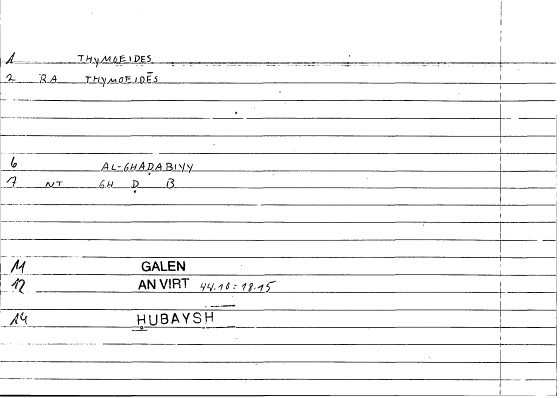 1 THYMOEIDES
2 RA THYMOEIDĒS
6 AL-GHAḌABIYY
7 NT GH Ḍ B
11 GALEN
12 AN VIRT 44.10:18.15
14 ḤUBAYSH